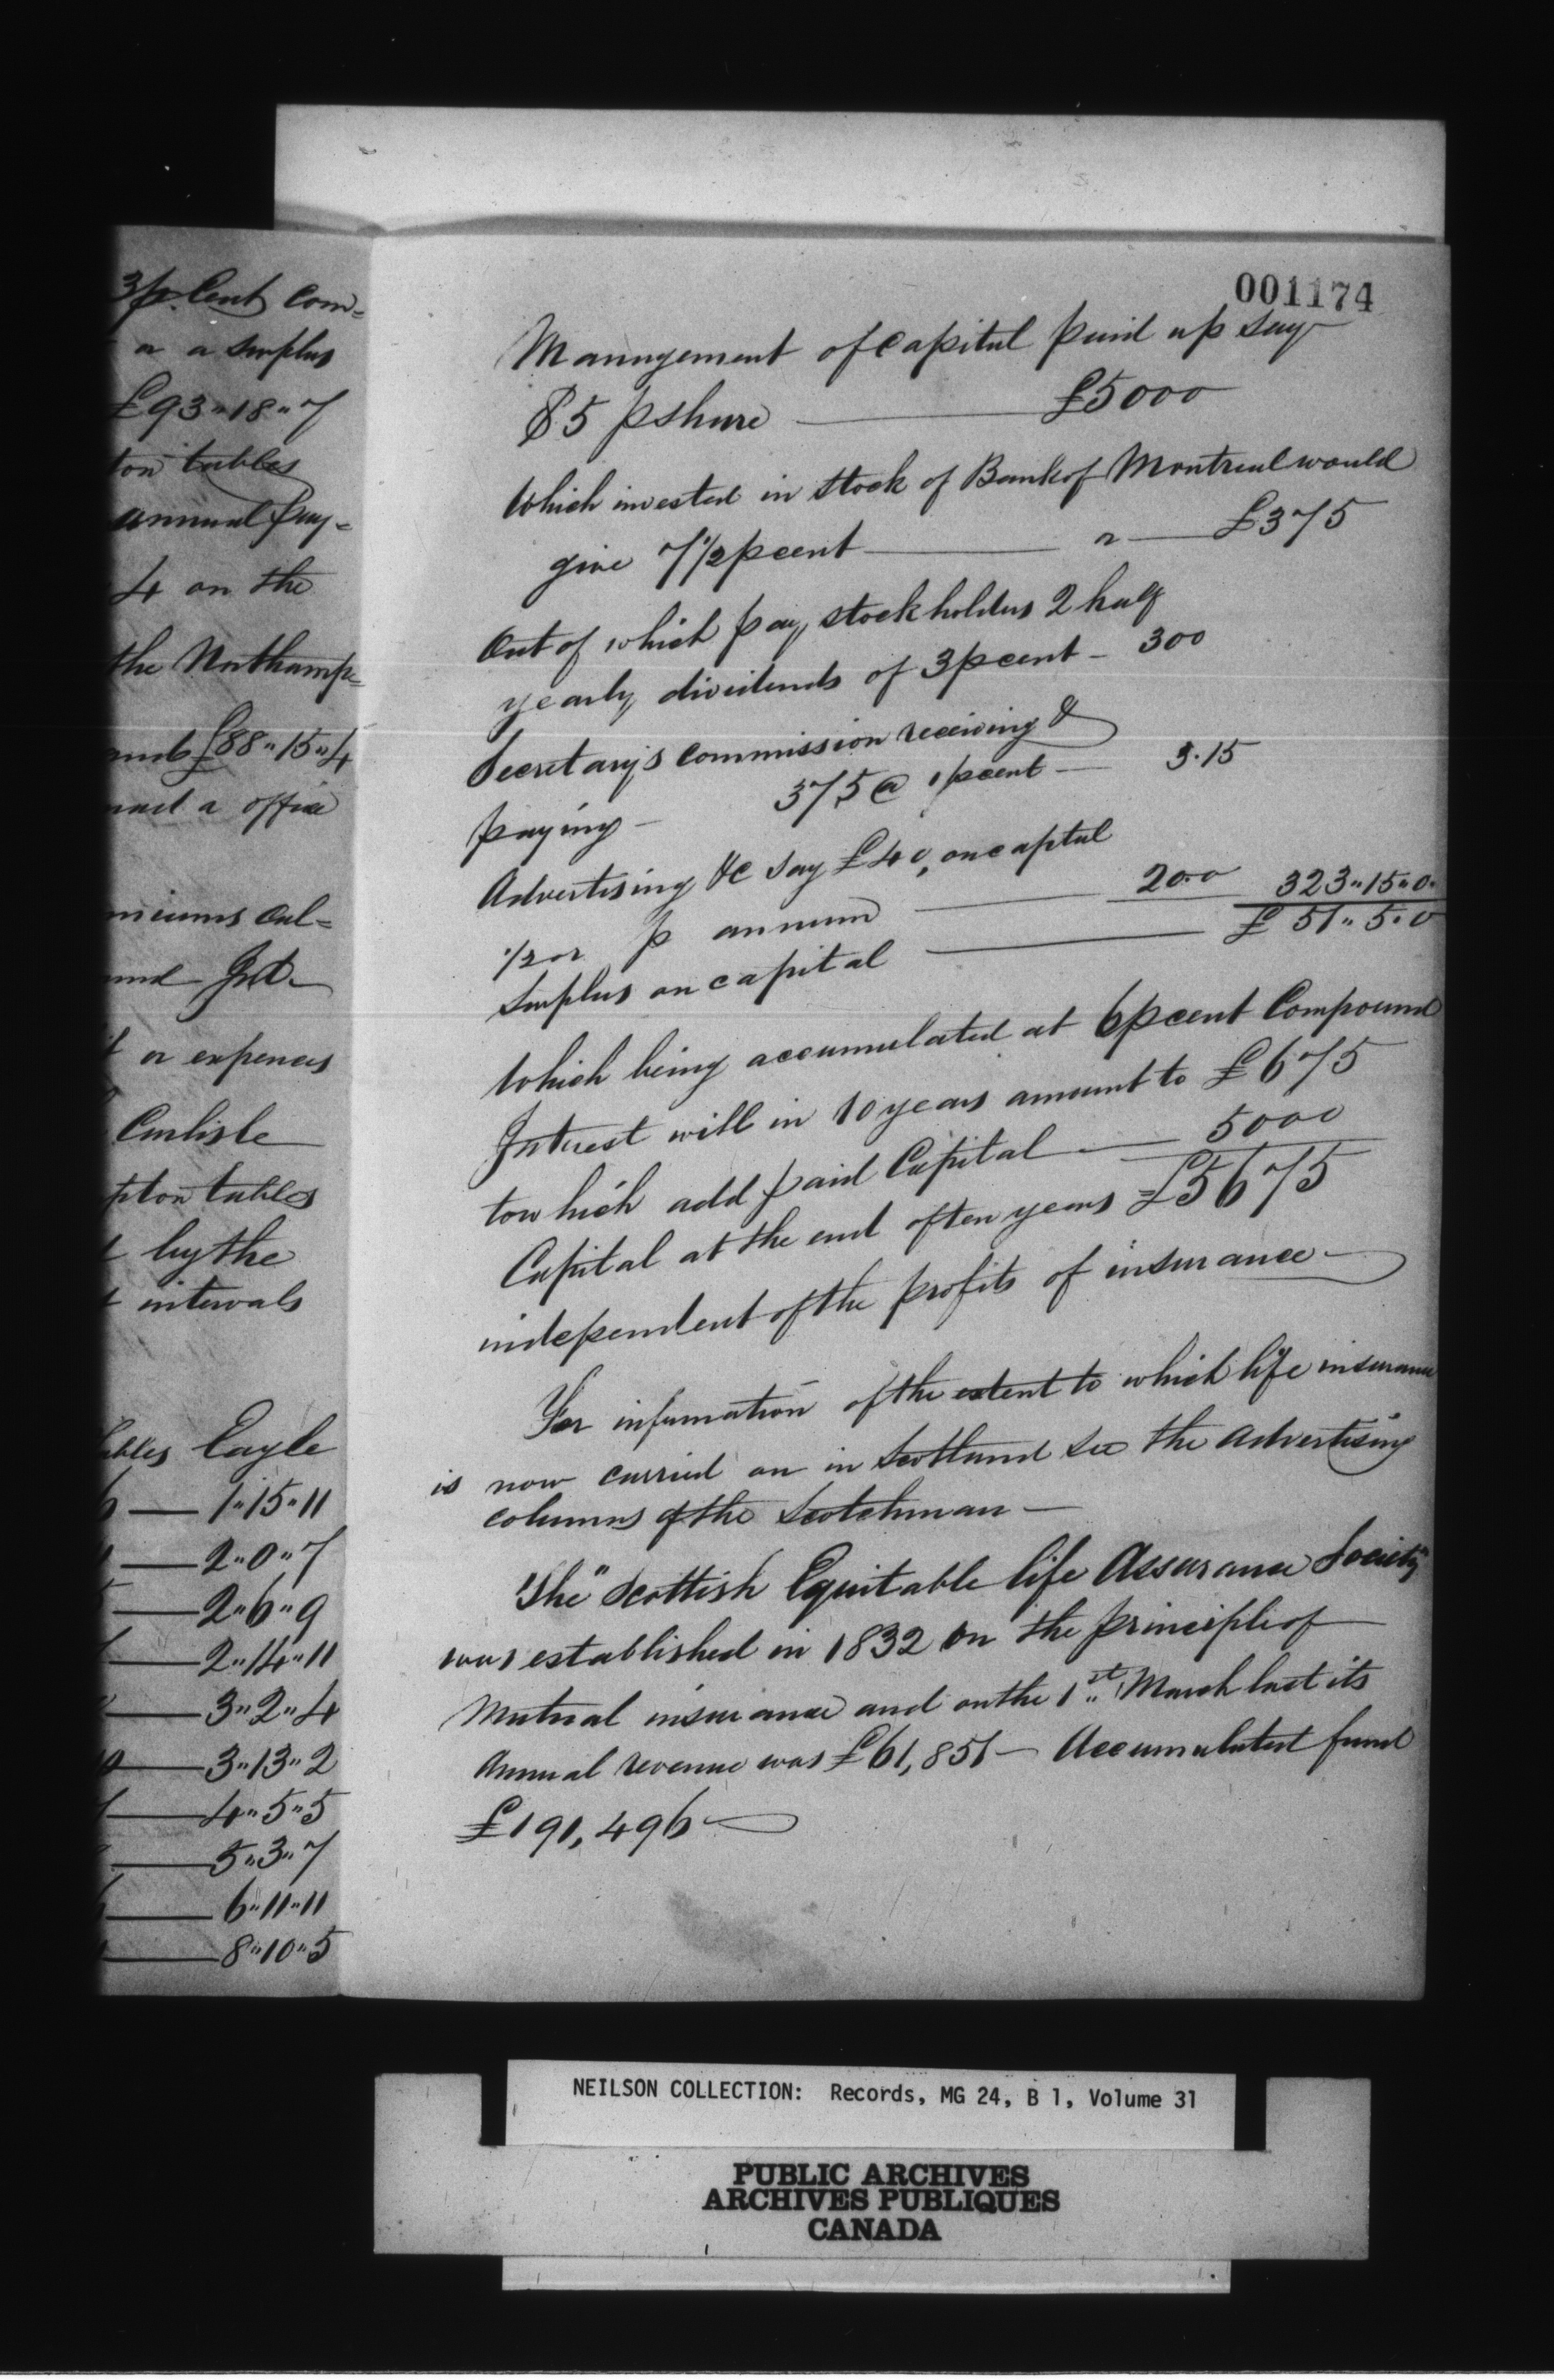 3 p Cent Com=
a a surplus
£93"18"7
ton tables
annual pay=
4 on the
the Northamp=
£88"15"4
a office
miums Cal=
Int
or expences
Carlisle
pton tables
by the
intervals
ables Eagle
1"15"11
2"0"7
2"6"9
2"14"11
3"2"4
3"13"2
4"5"5
5"3"7
6"11"11
8"10"5
001174
Management of Capital paid up say
$5 p share — £5000
Which invested in stock of Bank of Montreal would
give 7 1/2 p cent — " — £375
Out of which pay stockholders 2 half
yearly dividends of 3 p cent - 300
Secretary's Commission receiving &
paying - 375 @ 1 p cent — 3.15
Advertising &c say £40, on capital
1/2 or p annum — 20.0 323"15"0.
Surplus on capital — £ 51"5"0
Which being accumulated at 6 p cent Compound
Interest will in 10 years amount to £675
to which add paid Capital — 5000
Capital at the end of ten years £5675
independent of the profits of insurance —
For information of the extent to which life insurance
is now carried on in Scotland see the advertising
columns of the Scotchman —
The "Scottish Equitable life Assurance Society"
was established in 1832 on the principle of
Mutual insurance and on the 1st March last its
Annual revenue was £61,851 — Accumulated fund
£191,496 —
NEILSON COLLECTION: Records, MG 24, B 1, Volume 31
PUBLIC ARCHIVES
ARCHIVES PUBLIQUES
CANADA